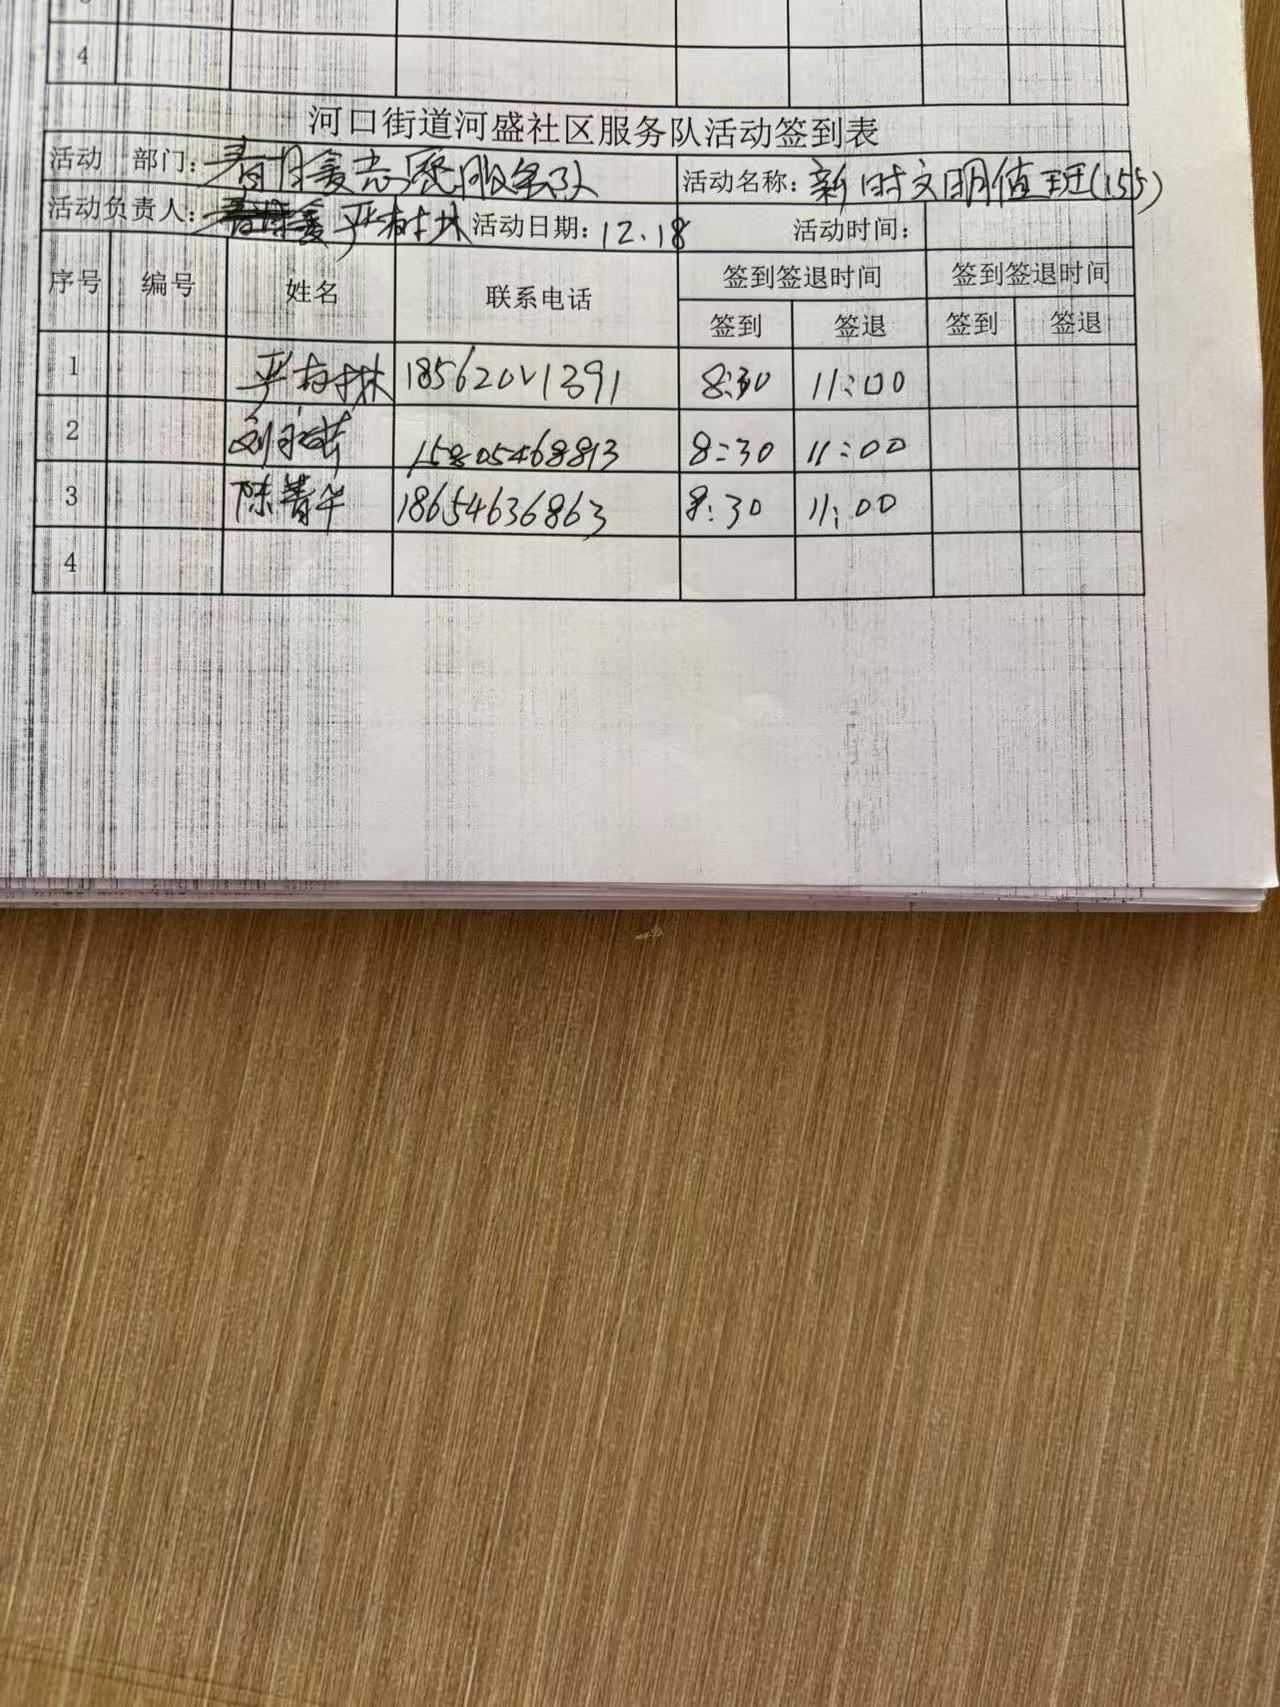 4
河口街道河盛社区服务队活动签到表
活动 部门：春日爱志愿服务队 活动名称：新时文明值班(155)
活动负责人：严树林 活动日期：12.18 活动时间：
序号 编号 姓名 联系电话 签到签退时间 签到签退时间
签到 签退 签到 签退
1 严树林 18562011391 8:30 11:00
2 刘 15805468813 8:30 11:00
3 陈菁华 18654636863 8:30 11:00
4